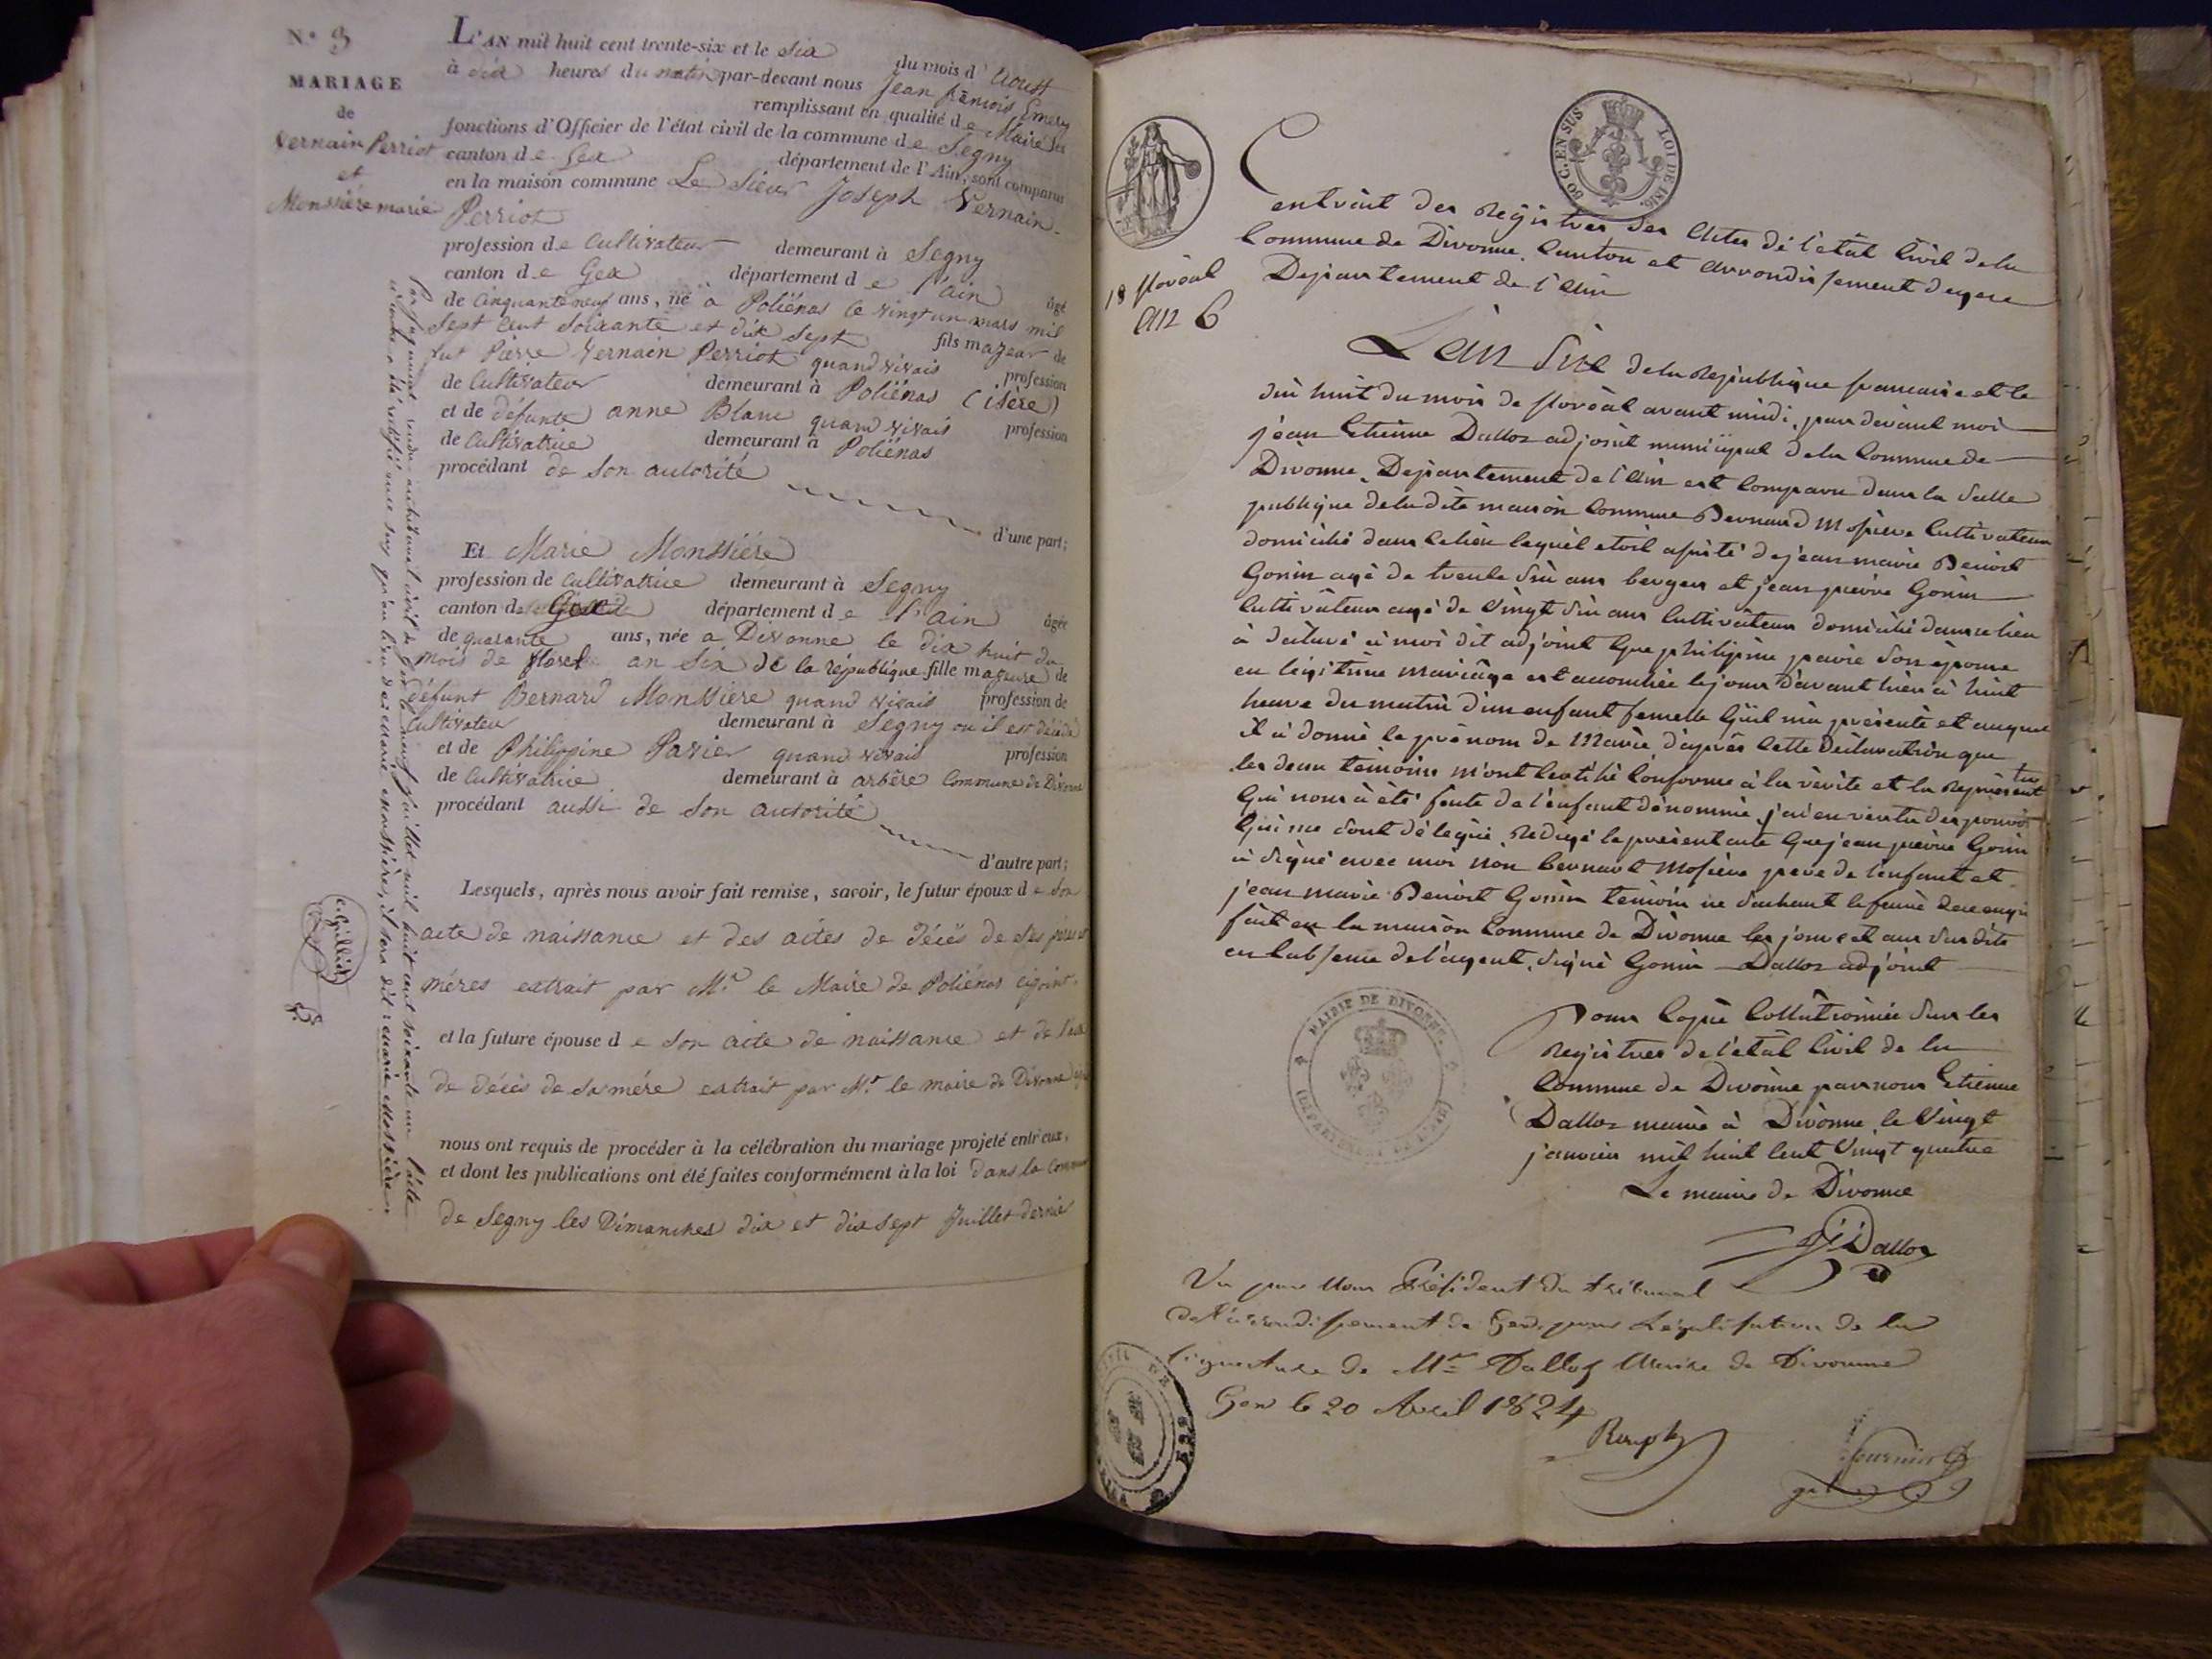 N.° 3
MARIAGE
de
Vernain Perriot
et
Monssiére marie
L'AN mil huit cent trente-six et le six du mois d'Aoust
à dix heures du matin par-devant nous Jean françois Emery
remplissant en qualité de Maire les
fonctions d'Officier de l'état civil de la commune de Segny
canton de Gex département de l'Ain, sont comparus
en la maison commune Le Sieur Joseph Vernain
Perriot
profession de Cultivateur demeurant à Segny
canton de Gex département de l'ain âgé
de Cinquante neuf ans, né à Poliénas le vingt un mars mil
sept cent soixante et dix sept fils majeur de
fut Pierre Vernain Perriot quand vivais profession
de Cultivateur demeurant à Poliénas (isère)
et de défunte anne Blanc quand vivais profession
de Cultivatrice demeurant à Poliénas
procédant de son autorité
d'une part;
Et Marie Monssiére
profession de Cultivatrice demeurant à Segny
canton de Gex département de l'ain âgée
de quarante ans, née a Divonne le dix huit du
mois de florel an six de la république fille majeure de
défunt Bernard Monssiere quand vivais profession de
Cultivateur demeurant à Segny ou il est décédé
et de Philippine Pavier quand vivais profession
de Cultivatrice demeurant à arbère Commune de Divonne
procédant aussi de son autorité
d'autre part;
Lesquels, après nous avoir fait remise, savoir, le futur époux de son
acte de naissance et des actes de décès de ses pères et
méres extrait par Mr. le Maire de Poliénas cijoint.
et la future épouse de son acte de naissance et de l'acte
de décès de sa mére extrait par Mr. le maire de Divonne
nous ont requis de procéder à la célébration du mariage projeté entr'eux,
et dont les publications ont été faites conformément à la loi dans la commune
de Segny les Dimanches dix et dix sept Juillet dernier
Par jugement rendu au tribunal civil de Gex le neuf juillet mil huit cent soixante un l'acte
ci contre a été rectifié en ce sens qu'au lieu de marie monssière, il sera dit: marie mossière
60 C. EN SUS
LOI DE 1816.
18 floréal
an 6
Extrait des Registres des Actes de l'état Civil de la
Commune de Divonne, Canton et arrondissement de gex
Departement de l'Ain
L'an Six de la Republique francaise et le
dix huit du mois de floréal avant midi, par devant moi
jean Etienne Dalloz adjoint municipal de la Commune de
Divonne, Departement de l'Ain est Comparu dans la Salle
publique de la dite maison Commune Bernard Mossiere Cultivateur
domicilié dans ce lieu lequel etoit assisté de jean marie Benoit
Gonin agé de trente Six ans berger et jean pierre Gonin
Cultivateur agé de Vingt Six ans Cultivateur domicilié dans ce lieu
à déclaré à moi dit adjoint que philipine pavie Son épouse
en légitime mariage est accouchée le jour d'avant hier à huit
heure du matin d'un enfant femelle qu'il m'a présenté et auquel
il à donné le prénom de Marie d'après cette déclaration que
les deux témoins m'ont Certifié Conforme à la vérité et la représentation
Qui nous à été faite de l'enfant dénommé, j'ai en vertu des pouvoirs
Qui me Sont délégué Redigé le présent acte que jean pierre Gonin
à Signé avec moi non bernard Mossiere pere de l'enfant et
jean marie Benoit Gonin temoin ne Sachant le faire de ce enquis
fait en la maison Commune de Divonne les jour et an Sus dits
en l'absence de l'agent, Signé Gonin — Dalloz adjoint
MAIRIE DE DIVONNE
(DÉPARTEMENT DE L'AIN)
Pour Copie Collationnée Sur les
Registres de l'état Civil de la
Commune de Divonne par nous Etienne
Dalloz maire à Divonne le Vingt
janvier mil huit Cent Vingt quatre
Le maire de Divonne
Dalloz
Vu par Nous Président du tribunal
de l'arrondissement de Gex, pour Légalisation de la
Signature de Mr. Dalloz Maire de Divonne
Gex le 20 Avril 1824
Fournier